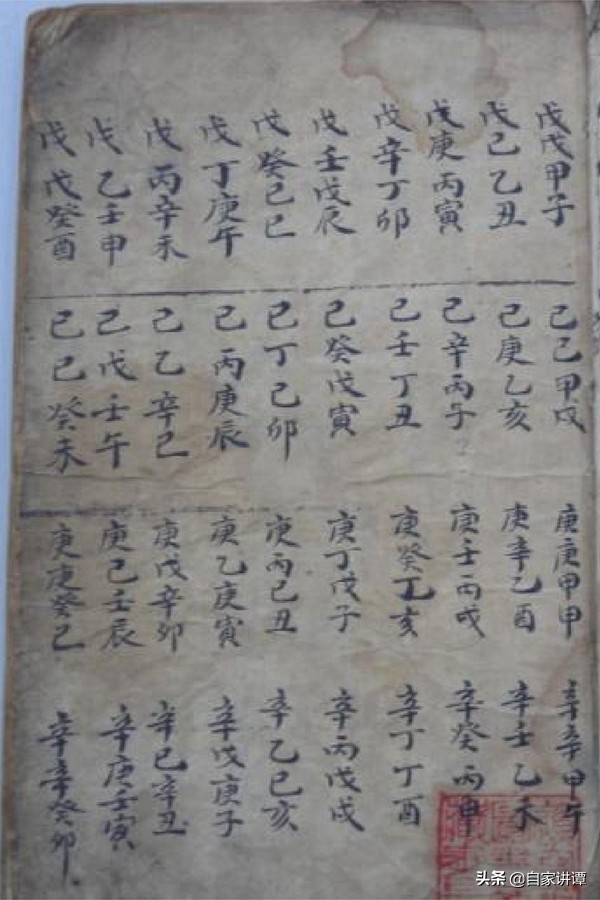 戊戊甲子
戊己乙丑
戊庚丙寅
戊辛丁卯
戊壬戊辰
戊癸己巳
戊丁庚午
戊丙辛未
戊乙壬申
戊戊癸酉
己己甲戌
己庚乙亥
己辛丙子
己壬丁丑
己癸戊寅
己丁己卯
己丙庚辰
己乙辛巳
己戊壬午
己己癸未
庚庚甲申
庚辛乙酉
庚壬丙戌
庚癸丁亥
庚丁戊子
庚丙己丑
庚乙庚寅
庚戊辛卯
庚己壬辰
庚庚癸巳
辛辛甲午
辛壬乙未
辛癸丙申
辛丁丁酉
辛丙戊戌
辛乙己亥
辛戊庚子
辛己辛丑
辛庚壬寅
辛辛癸卯
头条 @自家讲谭